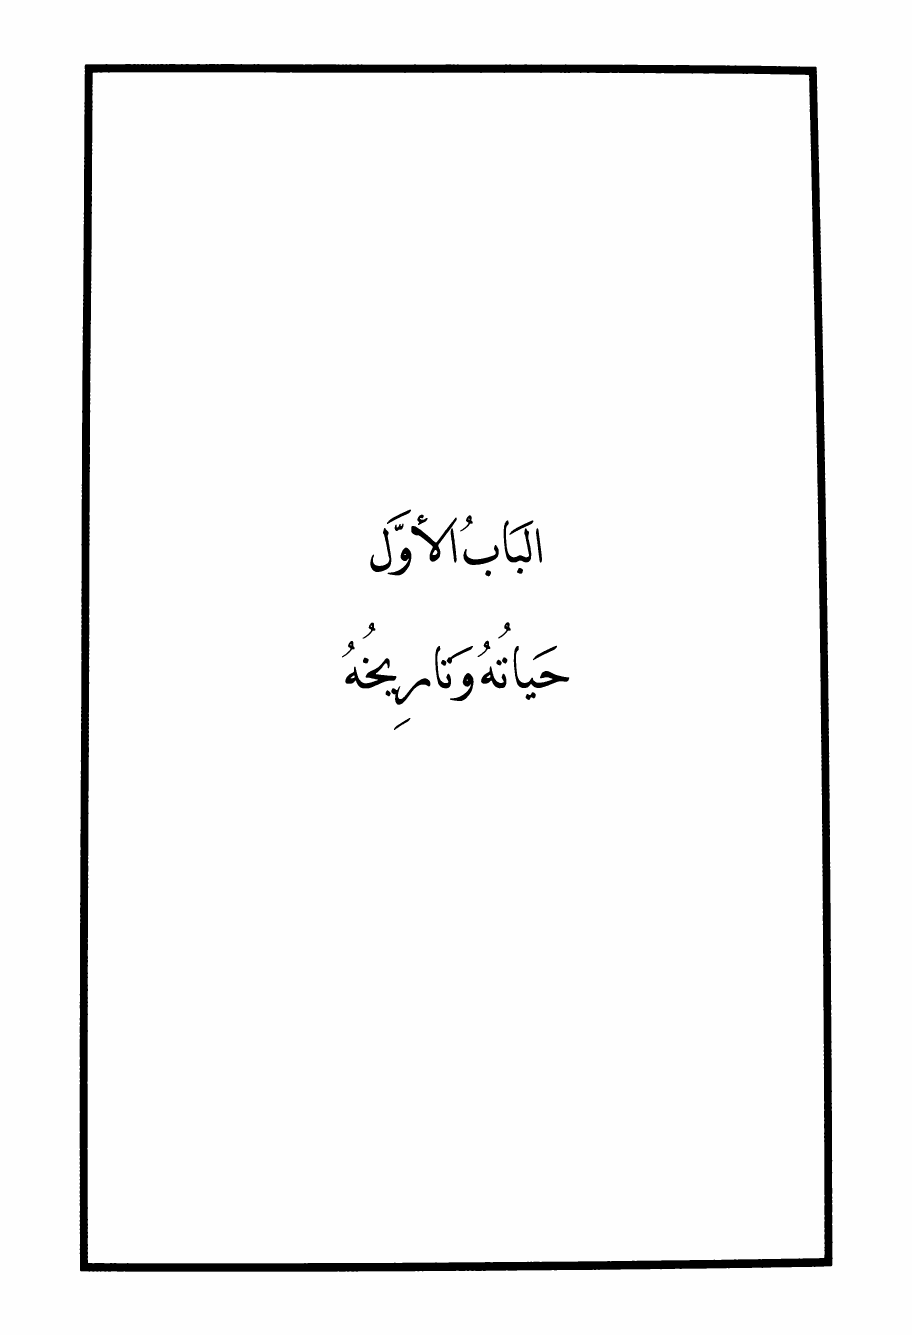 البَابُ الأوَّل
حَيَاتُهُ وَتَارِيخُهُ